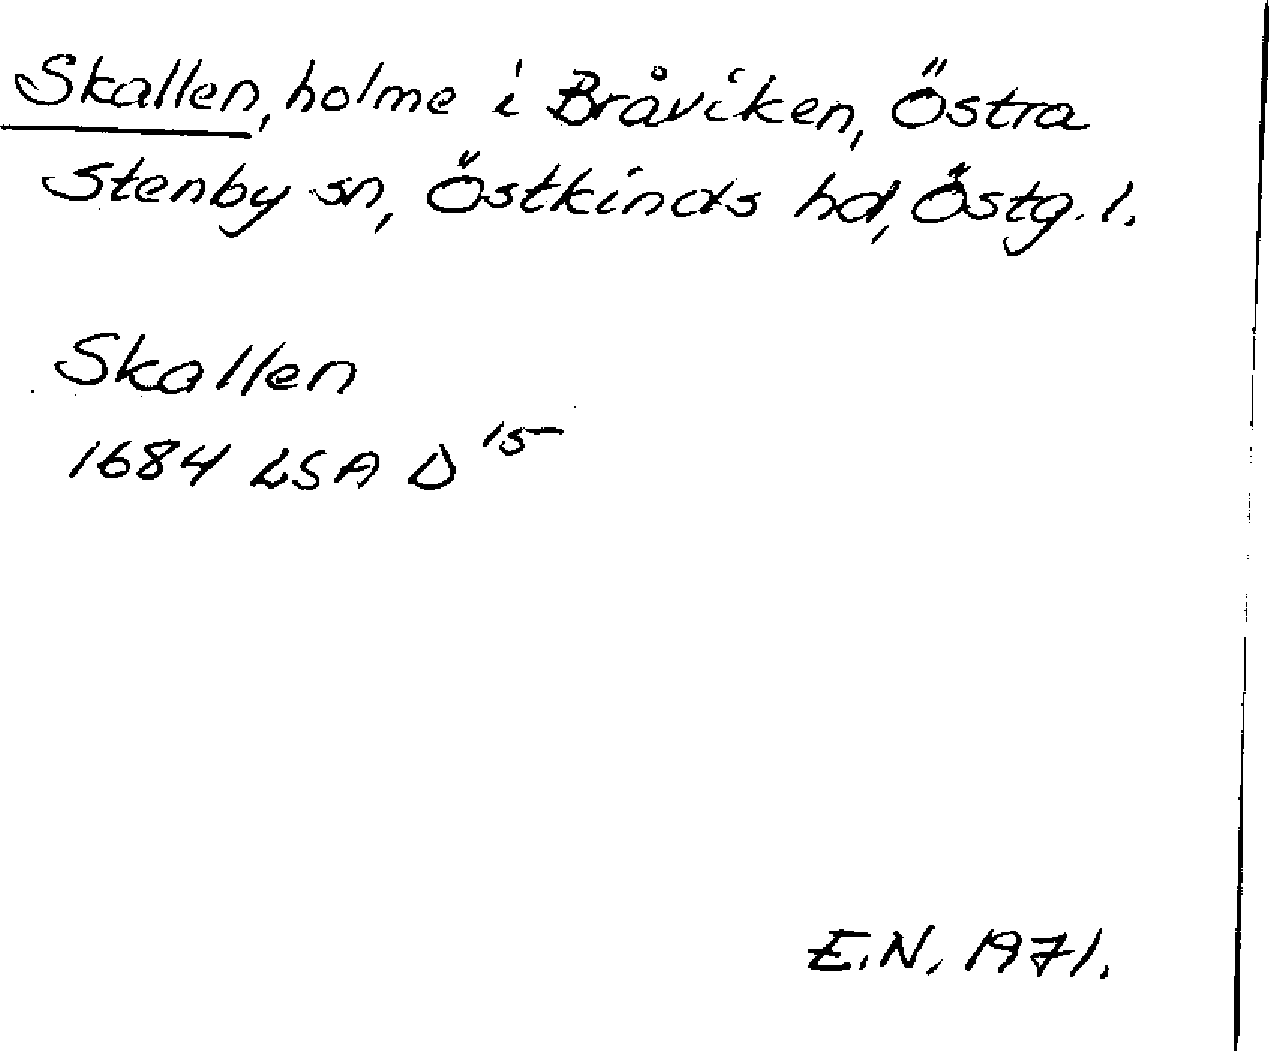 Skallen, holme i Bråviken, Östra
Stenby sn, Östkinds hd, Östg. l.
Skallen
1684 LSA D 15
E.N. 1971.